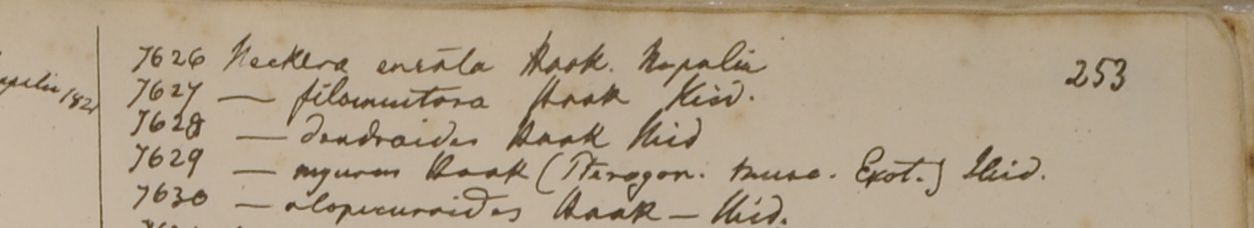 7626 Neckera Hook. Napalia
253
7627 — filamentosa Hook Ibid.
7628 — dendroides Hook Ibid
7629 — myurus Hook (Pterogon. Musc. Exot.) Ibid.
7630 — alopecuroides Hook — Ibid.
1821